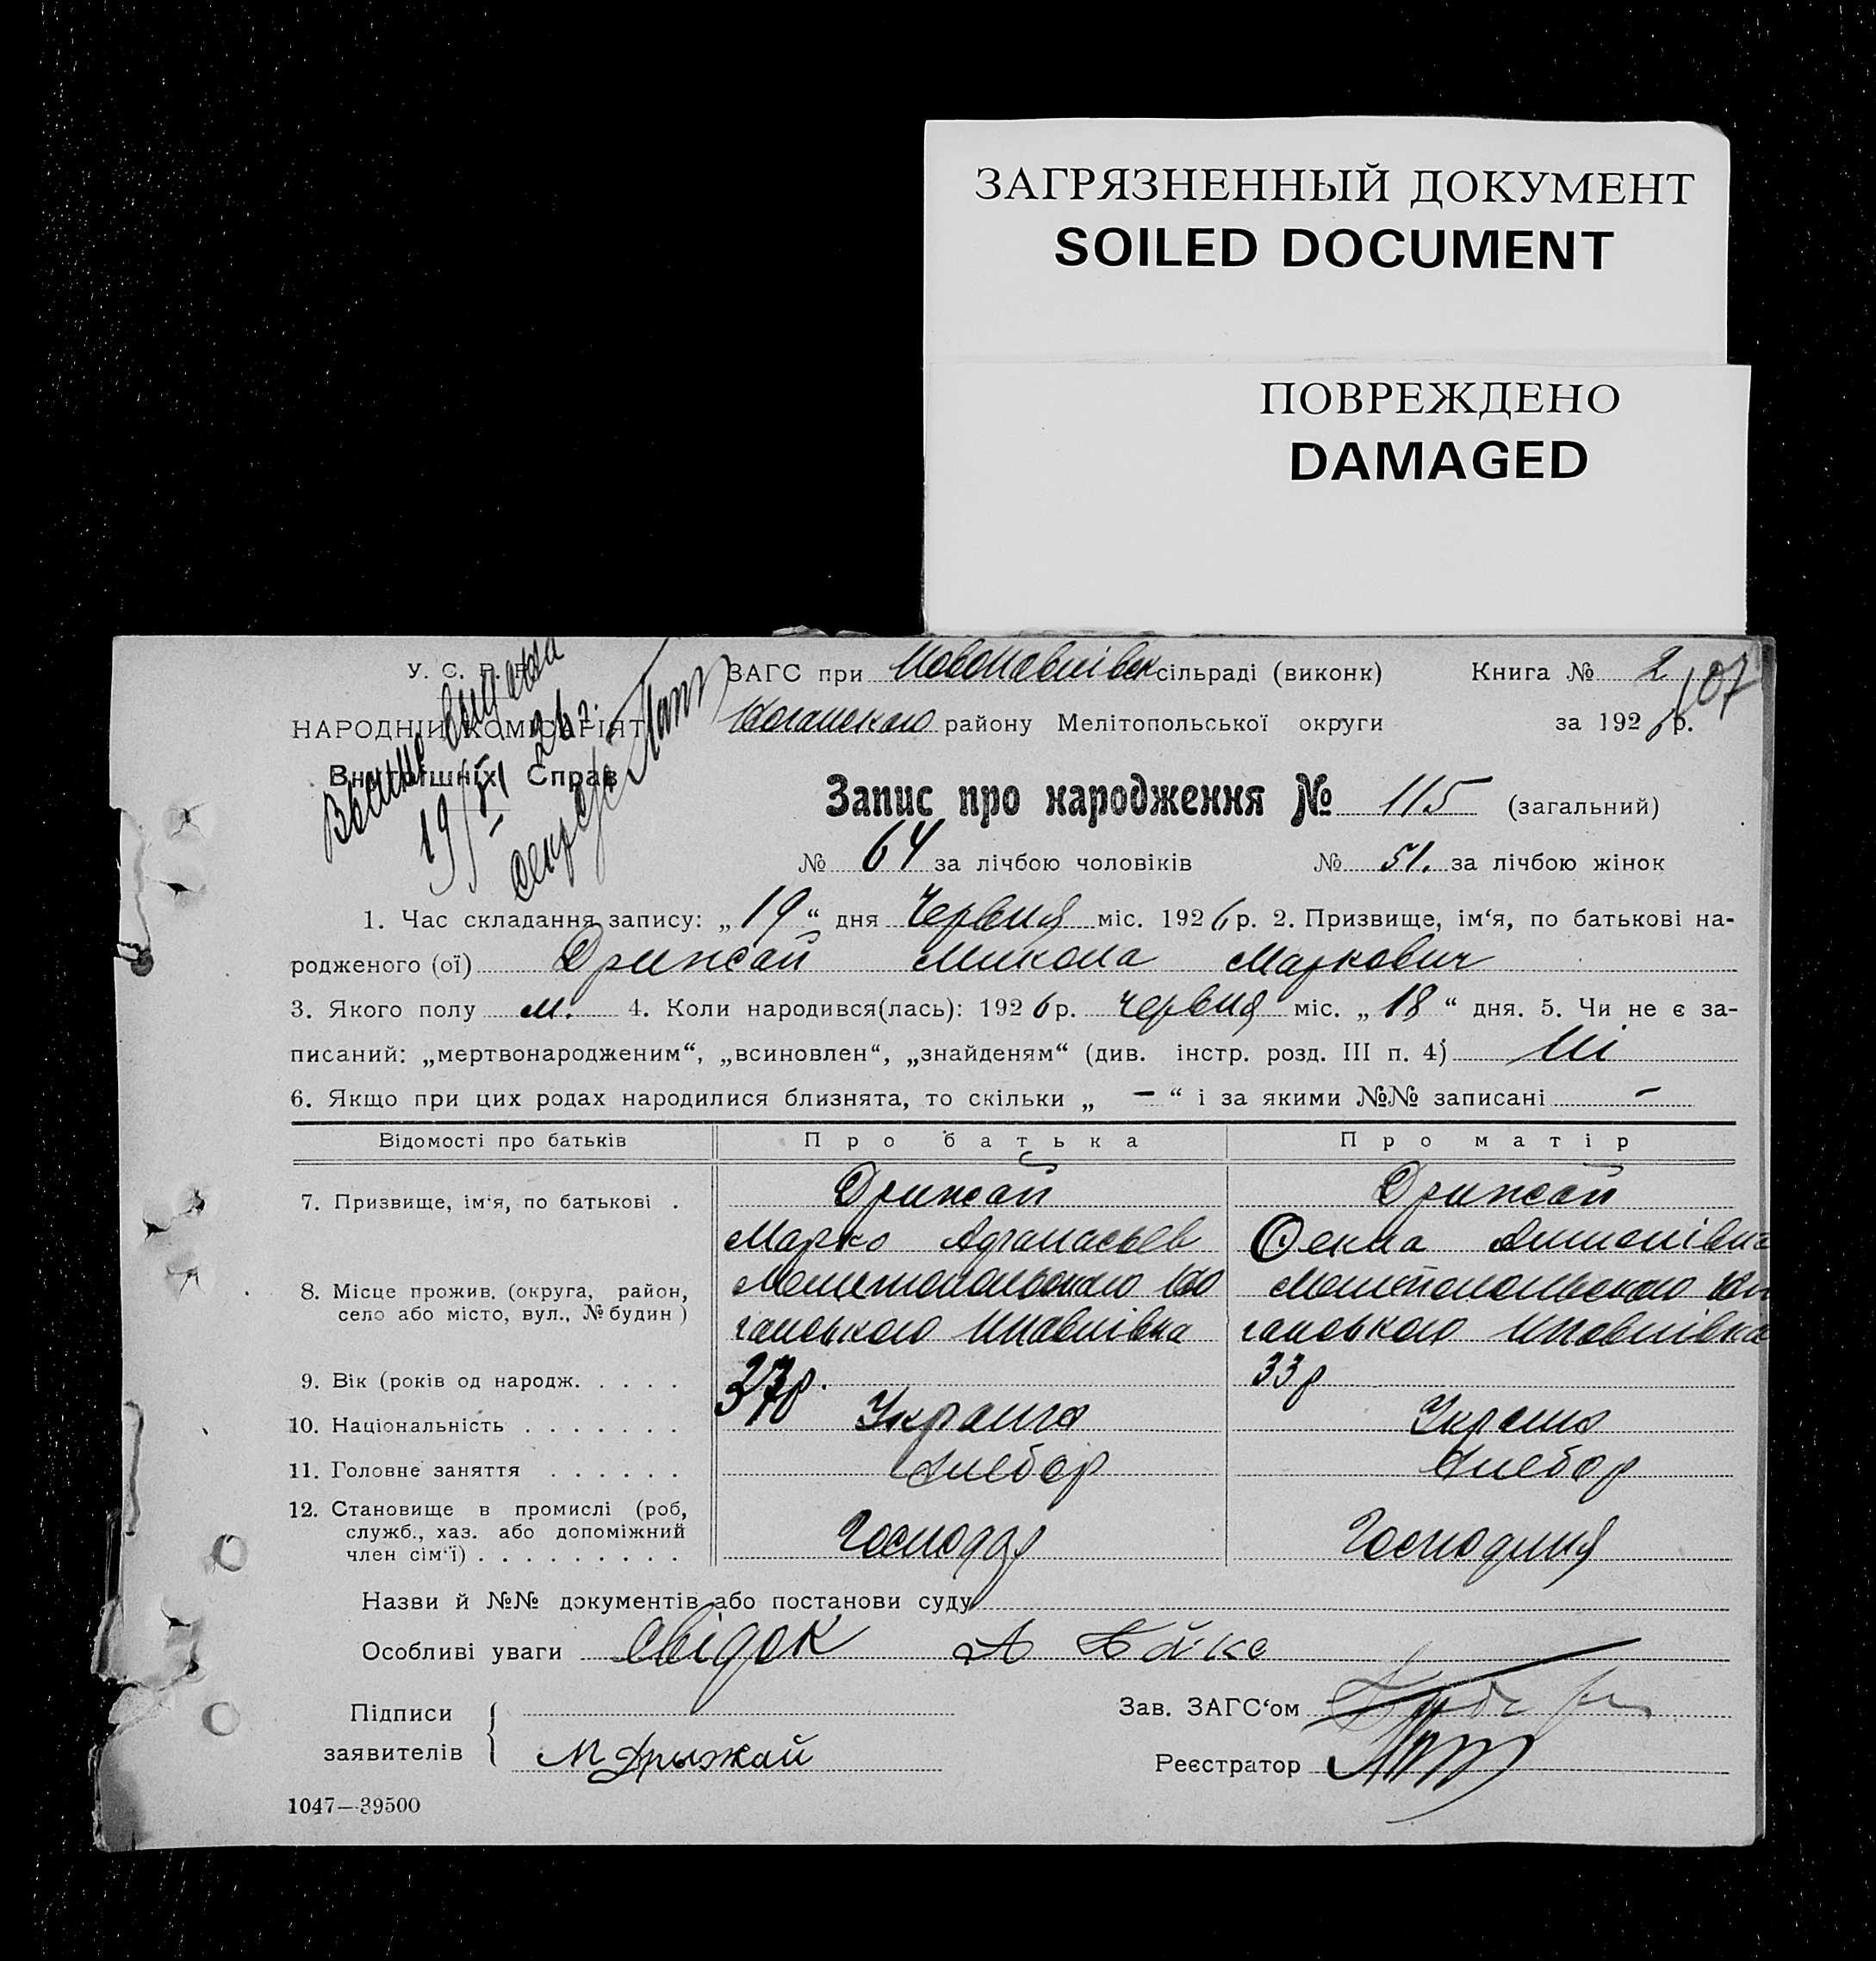 ЗАГРЯЗНЕННЫЙ ДОКУМЕНТ
SOILED DOCUMENT
ПОВРЕЖДЕНО
DAMAGED
У. С. Р. Р. ЗАГС при Новопавлівск сільраді (виконк) Книга № 2 107
НАРОДНІЙ КОМІСАРІЯТ району Мелітопольської округи за 1926 р.
Внутрішніх Справ
19/VI 26 г.
Запис про народження № 115 (загальний)
№ 64 за лічбою чоловіків № 51. за лічбою жінок
1. Час складання запису: „19“ дня Червня міс. 1926 р. 2. Призвище, ім‘я, по батькові на-
родженого (ої) Дрижай Микола Маркович
3. Якого полу м. 4. Коли народився(лась): 1926 р. червня міс. „18“ дня. 5. Чи не є за-
писаний: „мертвонародженим“, „всиновлен“, „знайденям“ (див. інстр. розд. III п. 4) Ні
6. Якщо при цих родах народилися близнята, то скільки „ — “ і за якими №№ записані —
Відомості про батьків Про батька Про матір
7. Призвище, ім‘я, по батькові . Дрижай Дрижай
Марко Афанасьев Антонівна
8. Місце прожив. (округа, район, Мелитопольського Мелітопольського
село або місто, вул., № будин ) ганського Нпавлівка ганського Нпавлівка
9. Вік (років од народж. . . . . 37р. 33р
10. Національність . . . . . . . Украин Украин
11. Головне заняття . . . . . . Хлебор Хлебор
12. Становище в промислі (роб,
служб., хаз. або допоміжний
член сім‘ї) . . . . . . . . . Господар Господиня
Назви й №№ документів або постанови суду
Особливі уваги Свідок А Бойко
Підписи Зав. ЗАГС‘ом
заявителів М Дрыжай Реєстратор
1047—39500